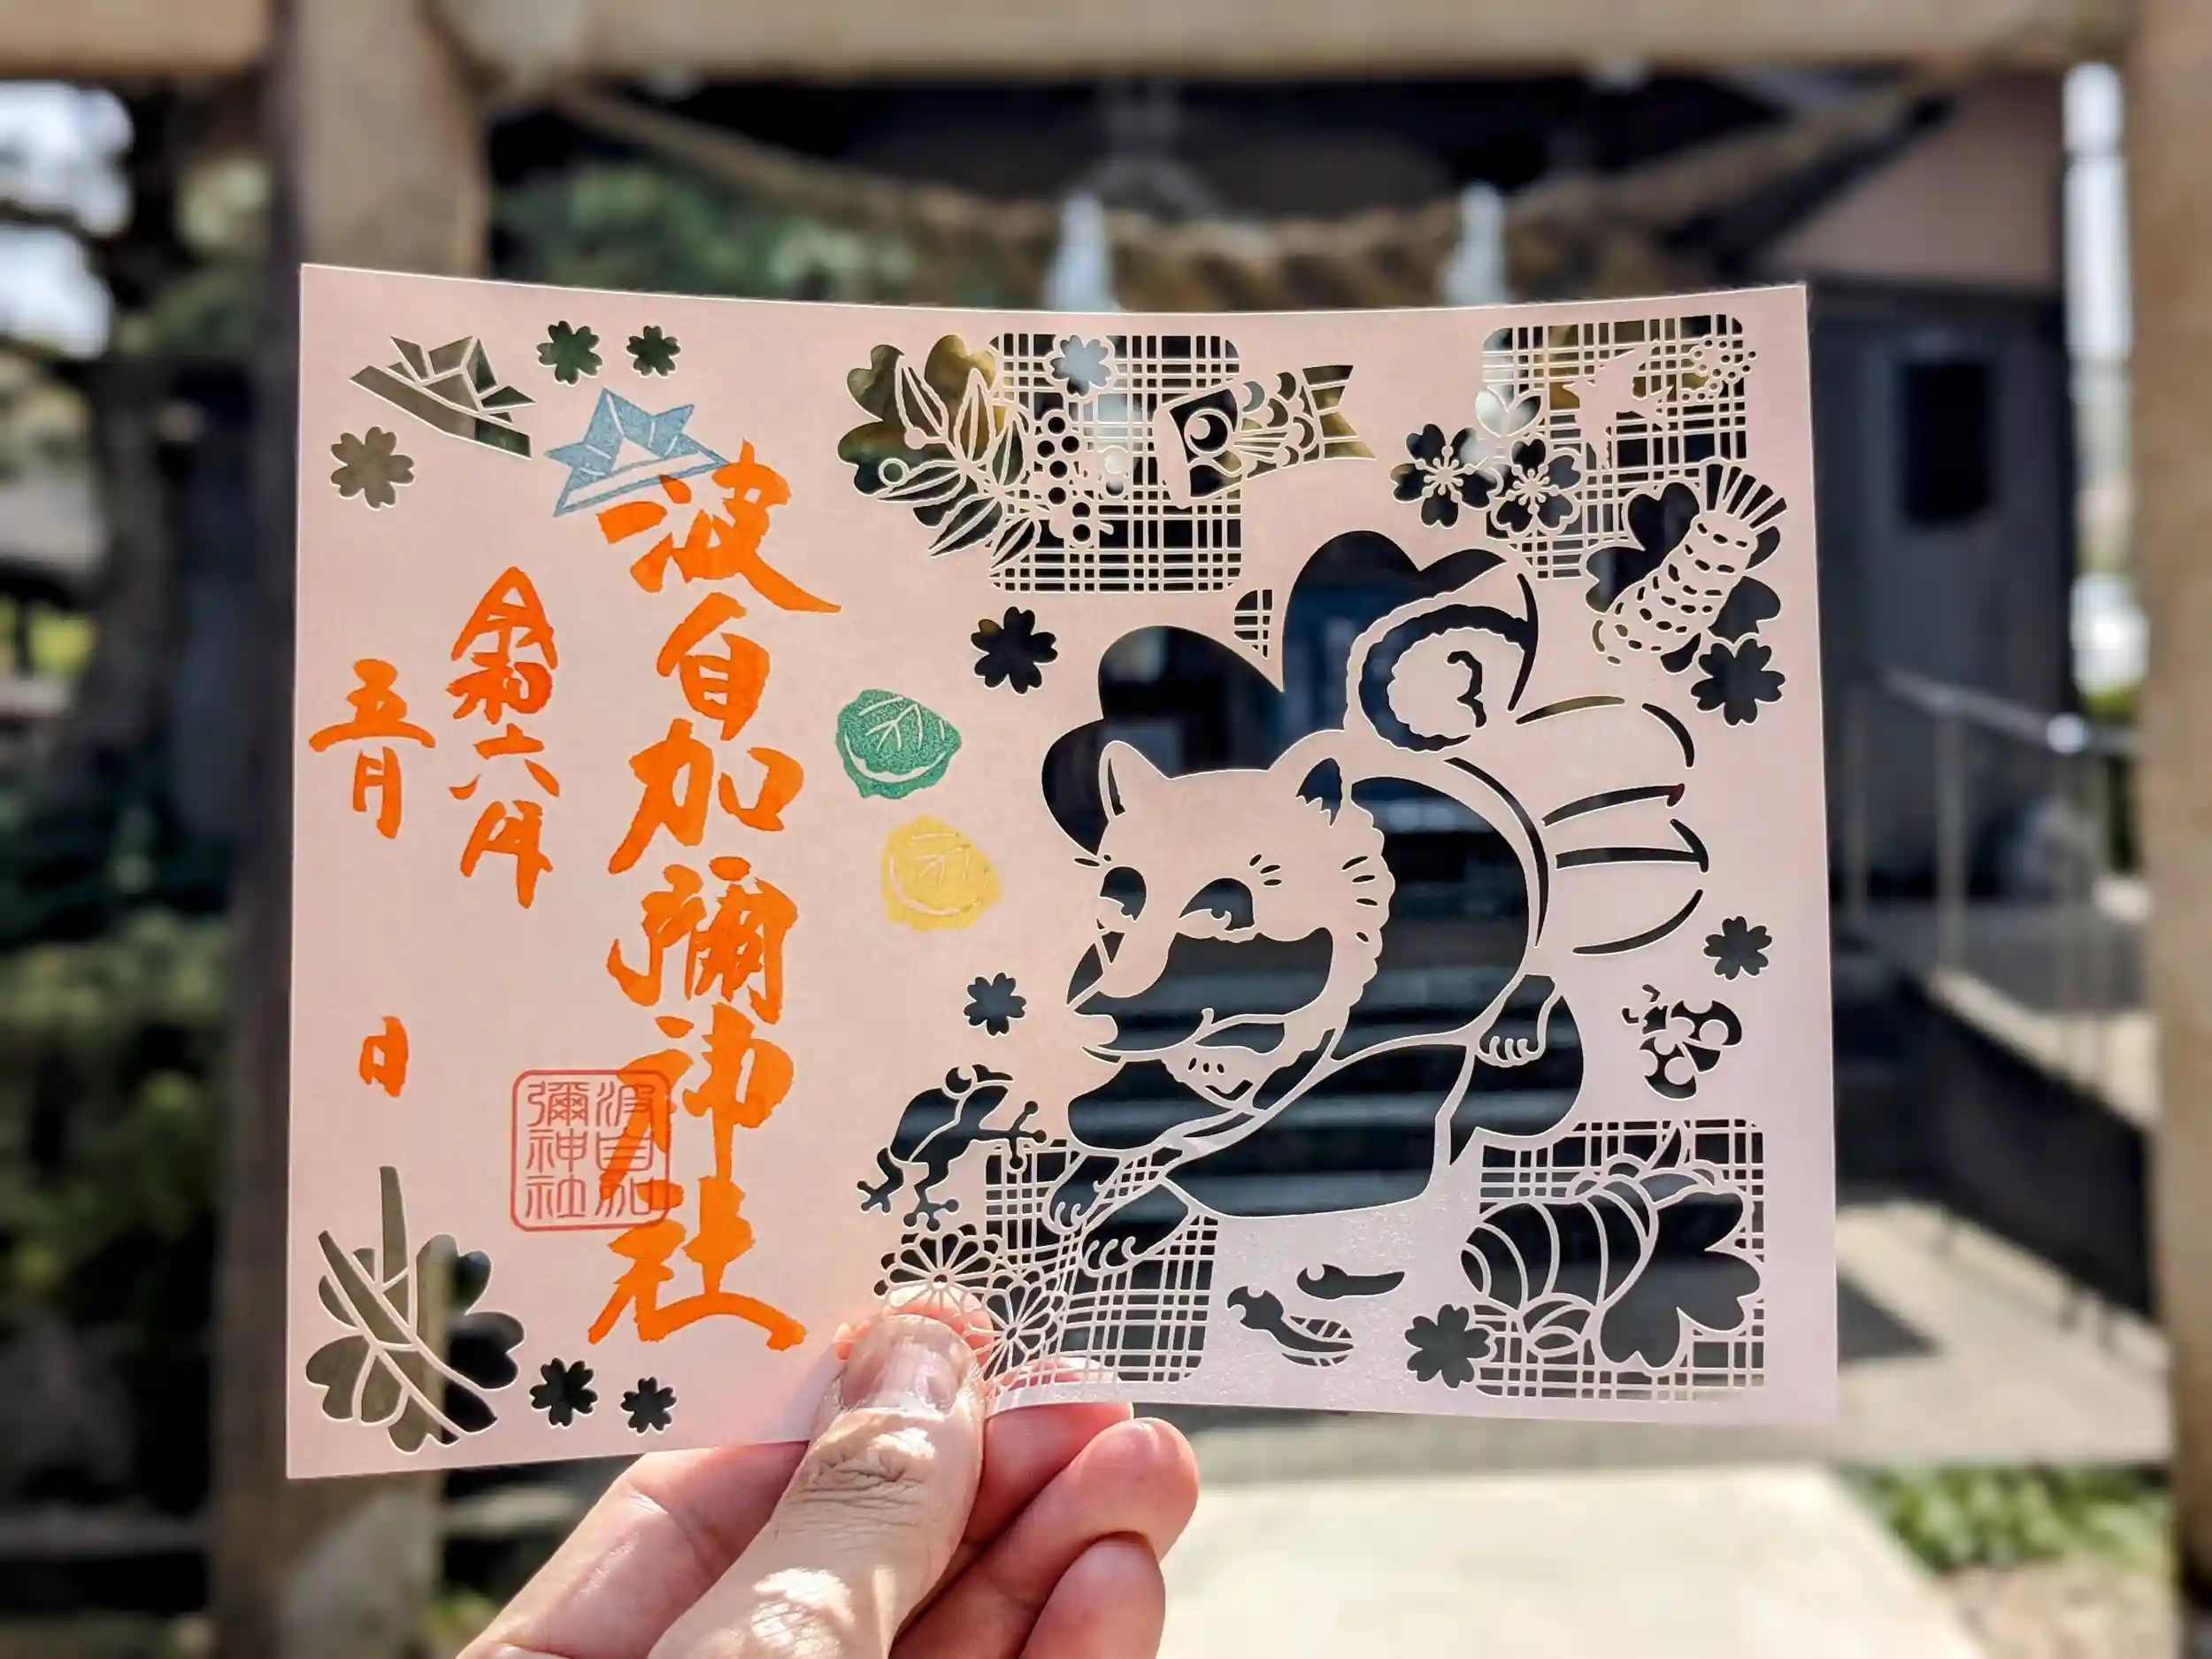 波自加彌神社
令和六年
五月
日
波自加
彌神社